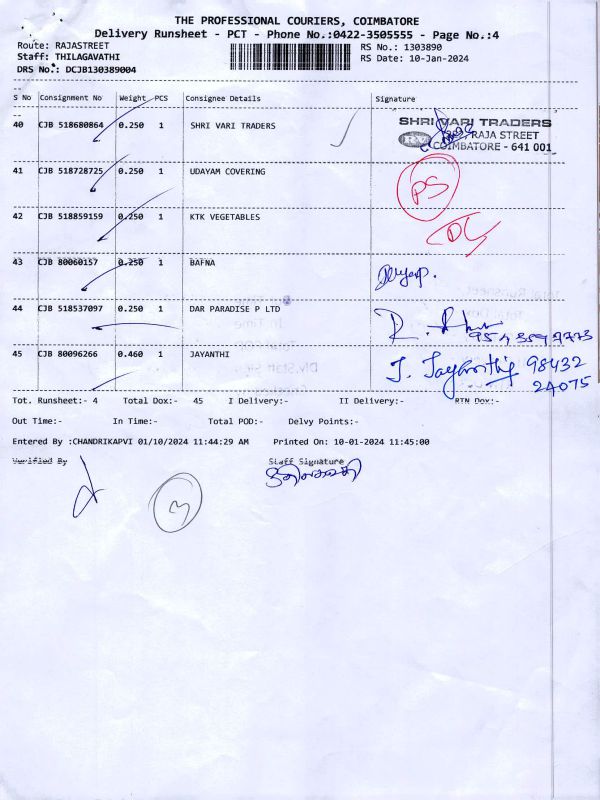 THE PROFESSIONAL COURIERS, COIMBATORE
Delivery Runsheet - PCT - Phone No.:0422-3505555 - Page No.:4
Route: RAJASTREET RS No.: 1303890
Staff: THILAGAVATHI RS Date: 10-Jan-2024
DRS No.: DCJB130389004
S No Consignment No Weight PCS Consignee Details Signature
40 CJB 518680864 0.250 1 SHRI VARI TRADERS
SHRI VARI TRADERS
RAJA STREET
COIMBATORE - 641 001
41 CJB 518728725 0.250 1 UDAYAM COVERING PS
42 CJB 518859159 0.250 1 KTK VEGETABLES DL
43 CJB 80060157 0.250 1 BAFNA
44 CJB 518537097 0.250 1 DAR PARADISE P LTD
45 CJB 80096266 0.460 1 JAYANTHI J. Jayanthi 98432
24075
Tot. Runsheet:- 4 Total Dox:- 45 I Delivery:- II Delivery:- RTN Dox:-
Out Time:- In Time:- Total POD:- Delvy Points:-
Entered By :CHANDRIKAPVI 01/10/2024 11:44:29 AM Printed On: 10-01-2024 11:45:00
Verified By Staff Signature